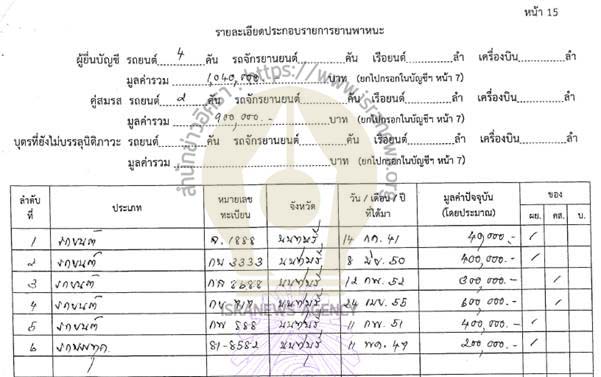 หน้า 15
รายละเอียดประกอบรายการยานพาหนะ
ผู้ยื่นบัญชี รถยนต์ 4 คัน รถจักรยานยนต์ คัน เรือยนต์ ลำ เครื่องบิน ลำ
มูลค่ารวม 1,040,000.- บาท (ยกไปกรอกในบัญชีฯ หน้า 7)
คู่สมรส รถยนต์ ๒ คัน รถจักรยานยนต์ คัน เรือยนต์ ลำ เครื่องบิน ลำ
มูลค่ารวม 900,000.- บาท (ยกไปกรอกในบัญชีฯ หน้า 7)
บุตรที่ยังไม่บรรลุนิติภาวะ รถยนต์ คัน รถจักรยานยนต์ คัน เรือยนต์ ลำ เครื่องบิน ลำ
มูลค่ารวม บาท (ยกไปกรอกในบัญชีฯ หน้า 7)
ลำดับที่ ประเภท หมายเลขทะเบียน จังหวัด วัน / เดือน / ปี ที่ได้มา มูลค่าปัจจุบัน (โดยประมาณ) ของ
ผย. คส. บ.
1 รถยนต์ 1888 นนทบุรี 14 กค. 41 40,000.- /
2 รถยนต์ กพ 3333 นนทบุรี 8 มิย. 50 400,000.- /
3 รถยนต์ 8688 นนทบุรี 12 กพ. 52 300,000.- /
4 รถยนต์ นนทบุรี 24 เมย. 55 600,000.- /
5 รถยนต์ กพ 888 นนทบุรี 11 กพ. 51 400,000.- /
6 81-8582 นนทบุรี 11 พค. 47 200,000.- /
สำนักข่าวอิศรา : https://www.isranews.org
ISRANEWS AGENCY